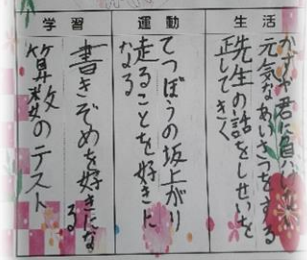 生活
かずや君に負けない
元気なあいさつをする
先生の話をしせいを
正してきく
運動
てつぼうの坂上がり
走ることを好きに
なる
学習
書きぞめを好きにな
る
算数のテスト